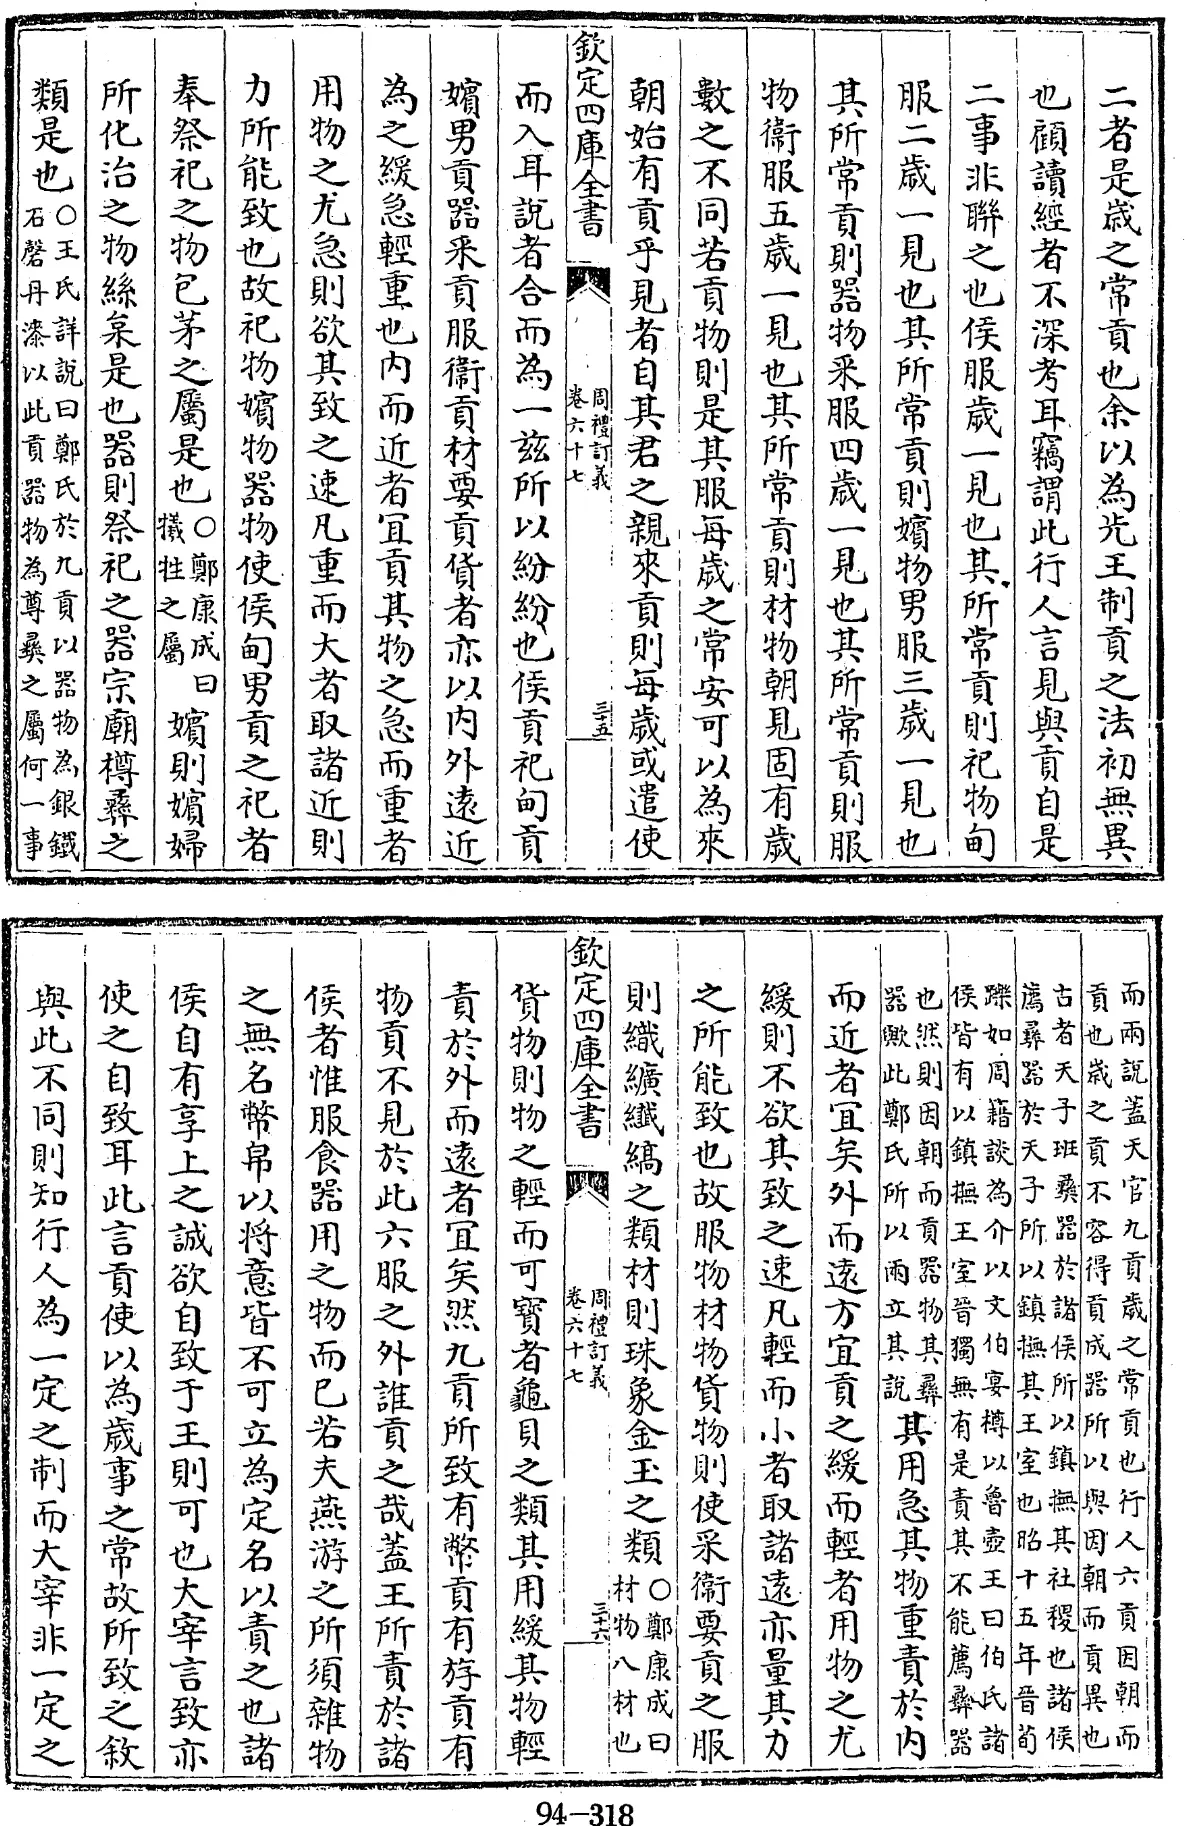 二者是歲之常貢也余以為先王制貢之法初無異
也顧讀經者不深考耳竊謂此行人言見與貢自是
二事非聯之也侯服歲一見也其所常貢則祀物甸
服二歲一見也其所常貢則嬪物男服三歲一見也
其所常貢則器物采服四歲一見也其所常貢則服
物衞服五歲一見也其所常貢則材物朝見固有歲
數之不同若貢物則是其服每歲之常安可以為來
朝始有貢乎見者自其君之親來貢則每歲或遣使
欽定四庫全書
周禮訂義
卷六十七
三五
而入耳說者合而為一兹所以紛紛也侯貢祀甸貢
嬪男貢器采貢服衞貢材要貢貨者亦以内外逺近
為之緩急輕重也内而近者宜貢其物之急而重者
用物之尤急則欲其致之速凡重而大者取諸近則
力所能致也故祀物嬪物器物使侯甸男貢之祀者
奉祭祀之物包茅之屬是也
○鄭康成曰
犧牲之屬
嬪則嬪婦
所化治之物絲枲是也器則祭祀之器宗廟樽彞之
類是也
○王氏詳說曰鄭氏於九貢以器物為銀鐵
石磬丹漆以此貢器物為尊彞之屬何一事
而兩說蓋天官九貢歲之常貢也行人六貢因朝而
貢也歲之貢不容得貢成器所以與因朝而貢異也
古者天子班彞器於諸侯所以鎮撫其社稷也諸侯
薦彞器於天子所以鎮撫其王室也昭十五年晉荀
躒如周籍談為介以文伯宴樽以魯壺王曰伯氏諸
侯皆有以鎮撫王室晉獨無有是責其不能薦彞器
也然則因朝而貢器物其彞
器歟此鄭氏所以兩立其說
其用急其物重責於内
而近者宜矣外而逺方宜貢之緩而輕者用物之尤
緩則不欲其致之速凡輕而小者取諸逺亦量其力
之所能致也故服物材物貨物則使采衞要貢之服
則織纊纖縞之類材則珠象金玉之類
○鄭康成曰
材物八材也
欽定四庫全書
周禮訂義
卷六十七
三六
貨物則物之輕而可寳者龜貝之類其用緩其物輕
責於外而逺者宜矣然九貢所致有幣貢有斿貢有
物貢不見於此六服之外誰貢之哉蓋王所責於諸
侯者惟服食器用之物而已若夫燕游之所須雜物
之無名幣帛以将意皆不可立為定名以責之也諸
侯自有享上之誠欲自致于王則可也大宰言致亦
使之自致耳此言貢使以為歲事之常故所致之敘
與此不同則知行人為一定之制而大宰非一定之
94-318